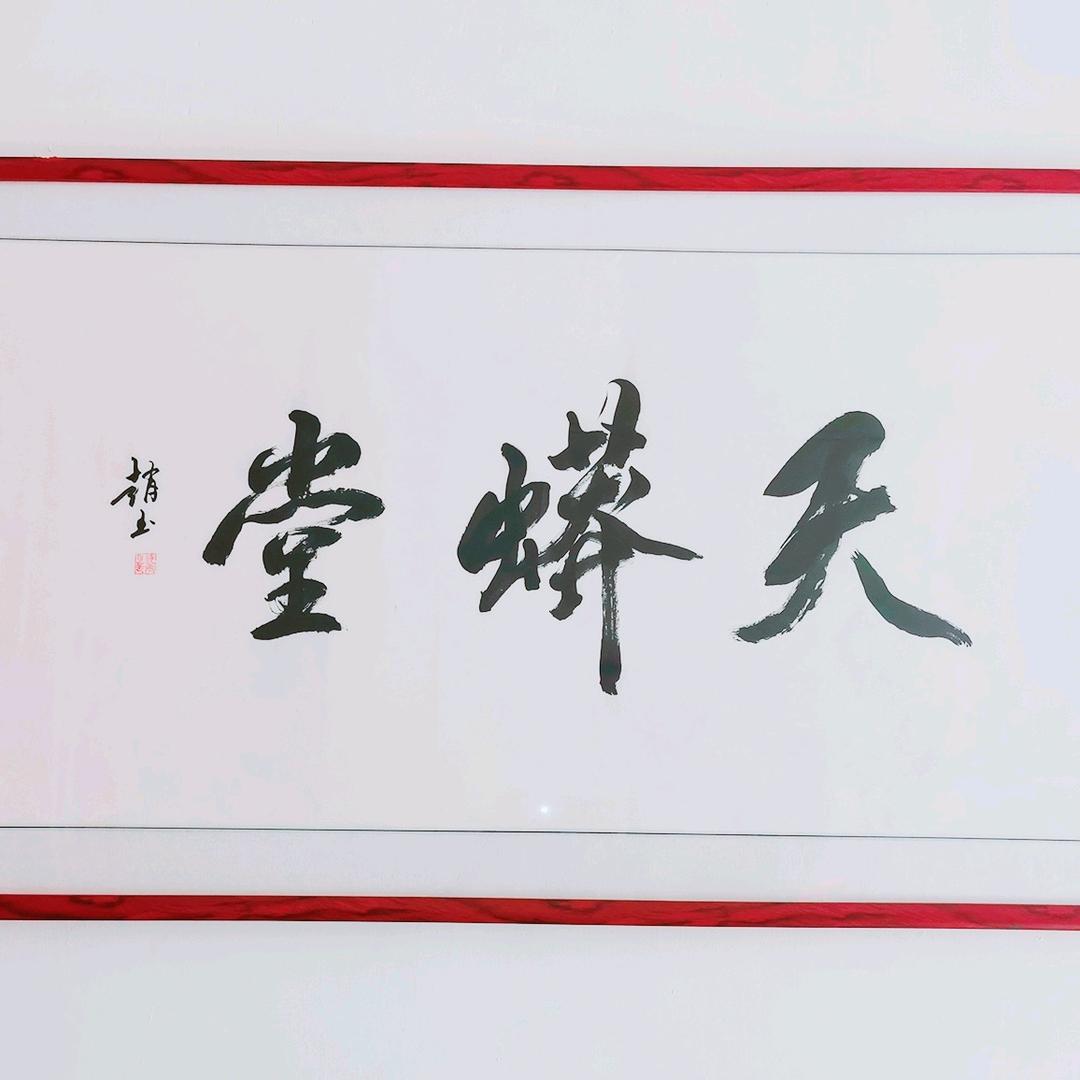 天蟒堂
趙玉